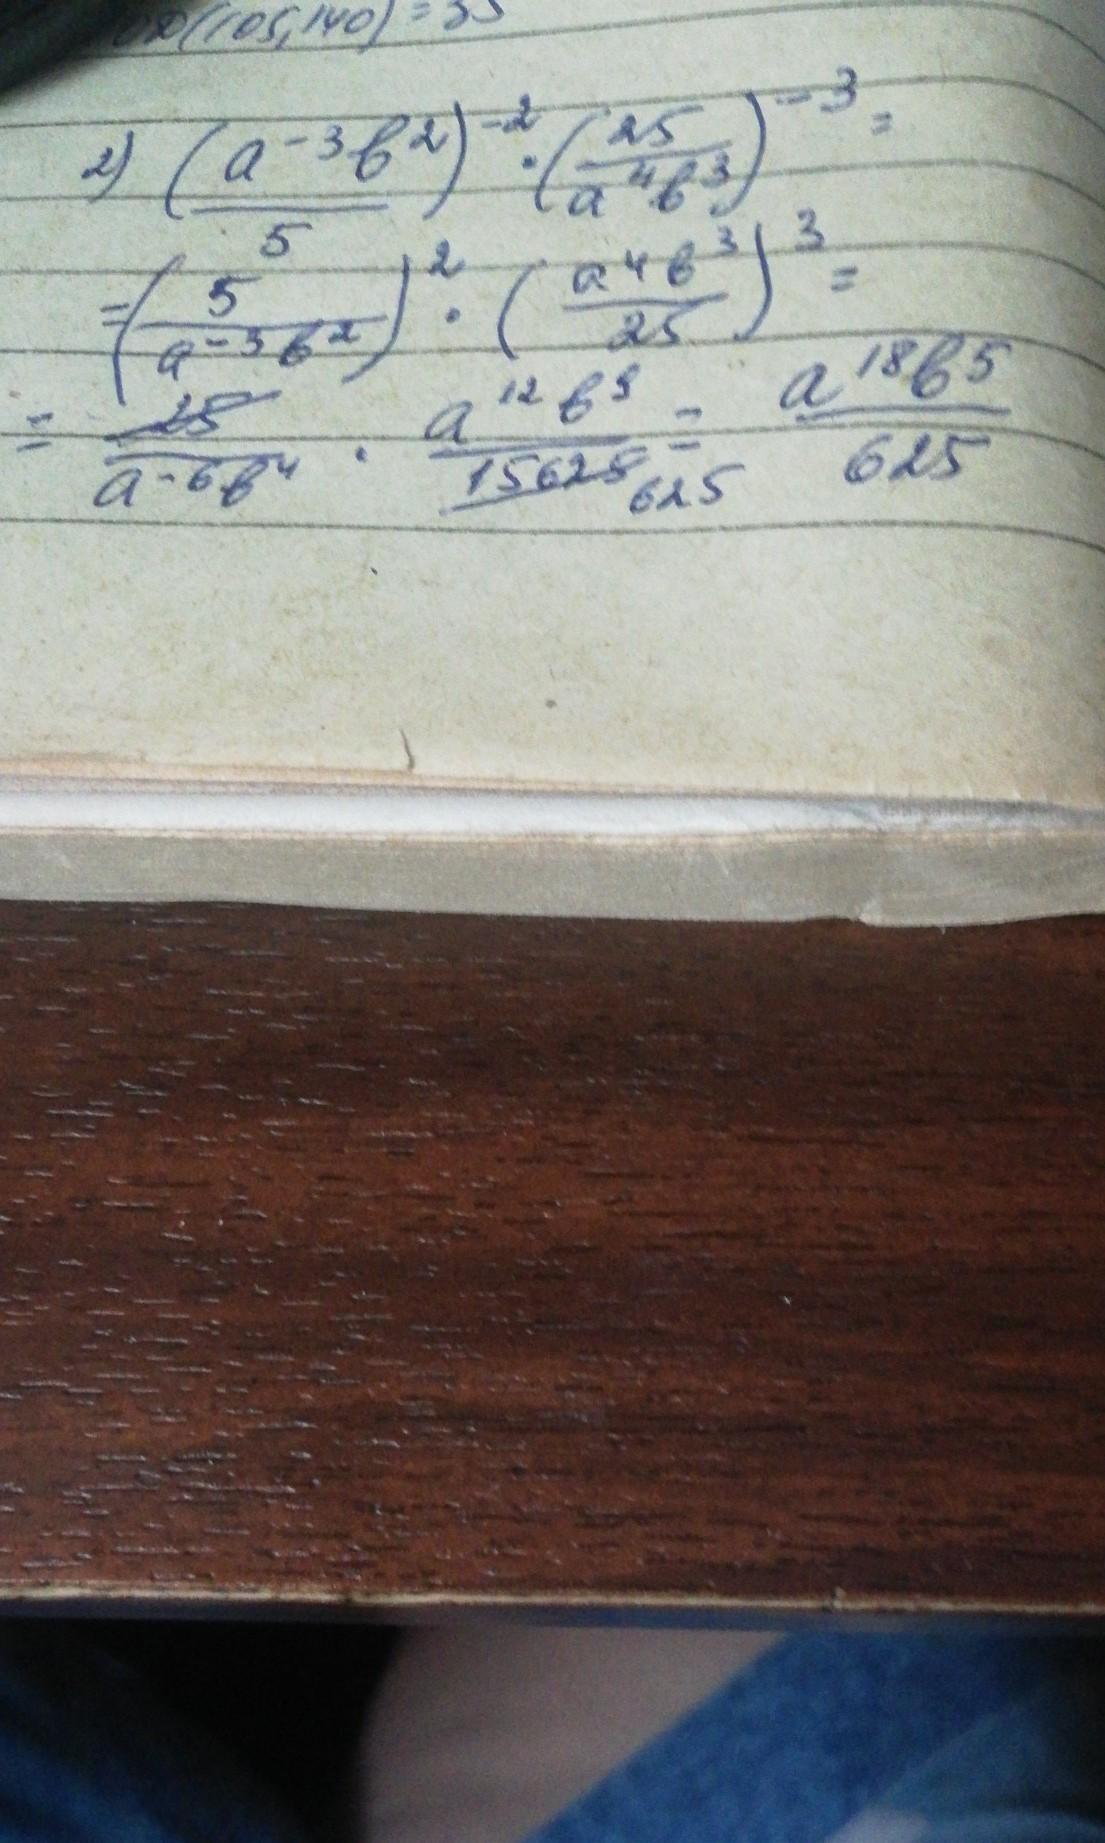 (105,140) = 35
2) (a⁻³b²/5)⁻² · (25/a⁴b³)⁻³ =
= (5/a⁻³b²)² · (a⁴b³/25)³ =
= 25/a⁻⁶b⁴ · a¹²b⁹/15625 625 = a¹⁸b⁵/625